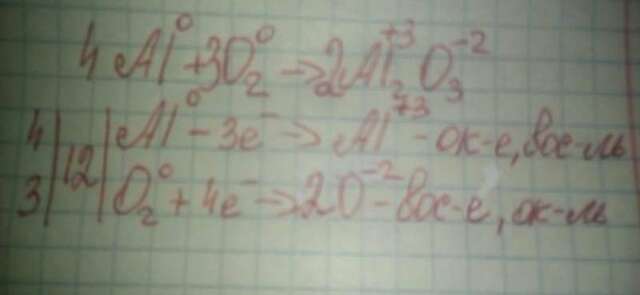 4Al⁰ + 3O₂⁰ → 2Al₂⁺³O₃⁻²
4 | 12 | Al⁰ - 3e⁻ → Al⁺³ - ок-е, вос-ль
3 | O₂⁰ + 4e⁻ → 2O⁻² - вос-е, ок-ль